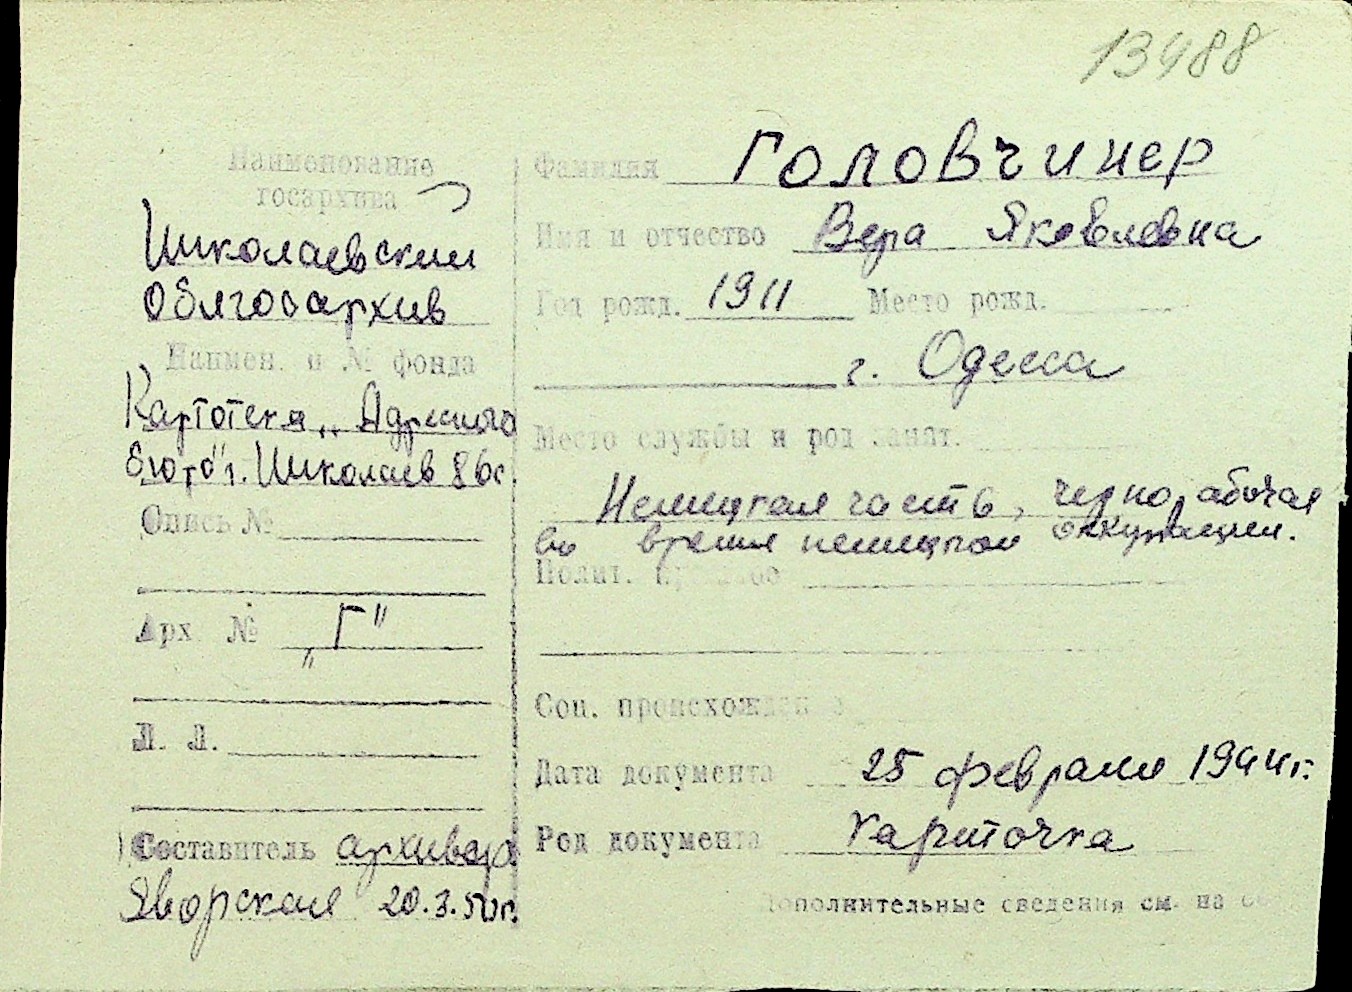 13488
Наименование
госархива
Николаевский
Облгосархив
Наимен. и № фонда
Картотека „Адресного
бюро" г. Николаев
Опись №
Арх. № „Г"
Л. Л.
Составитель архивар
Яворская 20.3.50г.
Фамилия Головчинер
Имя и отчество Вера Яковлевна
Год рожд. 1911 Место рожд.
г. Одесса
Место службы и род занят.
Немецкая часть, чернорабочая
во время немецкой оккупации.
Полит.
Соц. происхожден е
Дата документа 25 февраля 1944г.
Род документа Карточка
Дополнительные сведения см. на